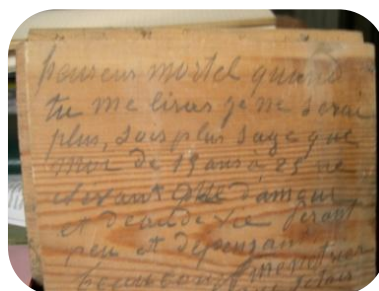 heureux mortel quand
tu me liras je ne serai
plus, sois plus sage que
moi de 15 ans à 25 ne
vivant que d'amour
et d'eau de vie fesant
peu et dépensan
beaucoup